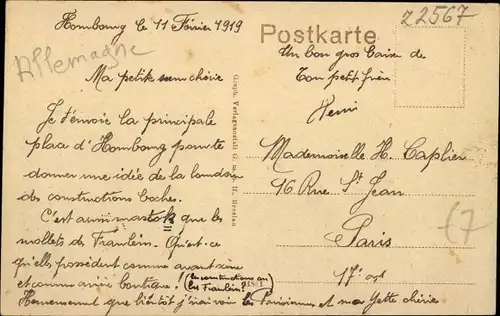 Hombourg le 11 Février 1919
Postkarte
22567
Allemagne
Ma petite sœur chérie
Je t'envoie la principale
place d'Hombourg pour te
donner une idée de la
des constructions boches.
C'est aussi mastok que les
mollets des Fraülein. Qu'est-ce
qu'elles possèdent comme avant scène
et comme arrière boutique! (les constructions ou
les Fraülein?)
Heureusement que bientôt j'irai voir les Parisiennes et ma Yette chérie
Graph. Verlagsanstalt G. m. b. H. Breslau
Un bon gros baiser de
Ton petit frère
Henri
Mademoiselle H. Caplier
16 Rue St Jean
Paris
17e arr